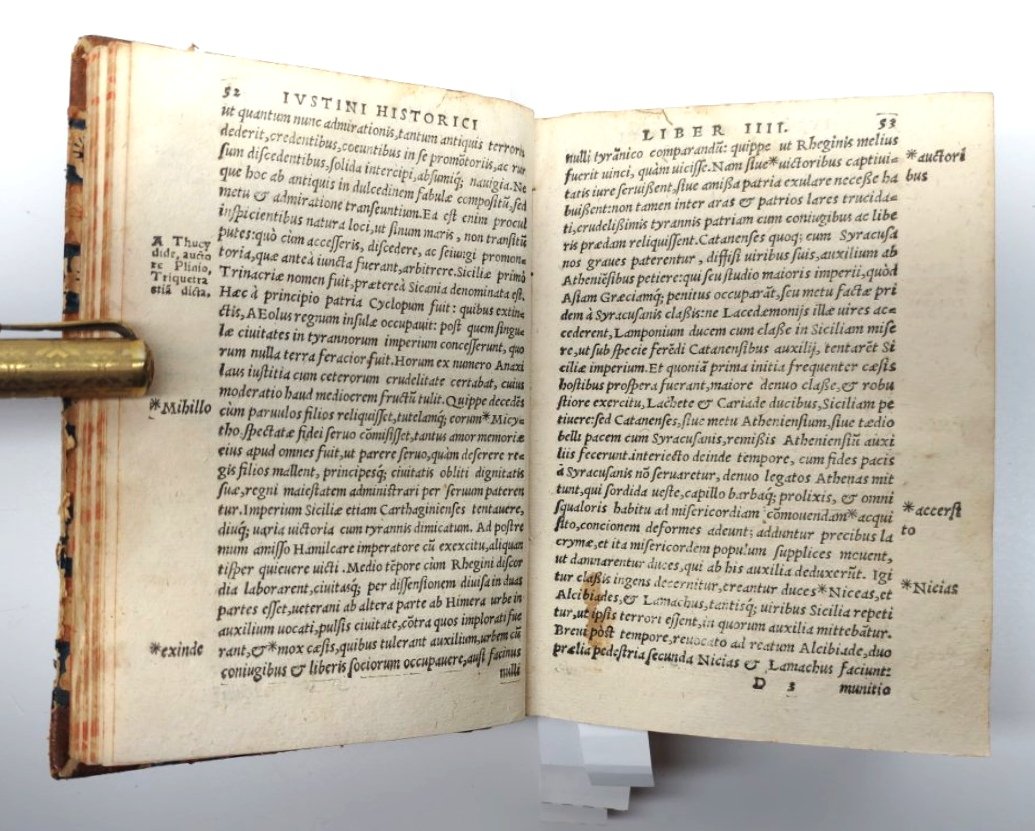 52 IVSTINI HISTORICI
ut quantum nunc admirationis,tantum antiquis terroris
dederit,credentibus,coeuntibus in se promotoriis,ac rur
sum discedentibus,solida intercipi,absumiq; nauigia.Ne
que hoc ab antiquis in dulcedinem fabulæ compositū,sed
metu & admiratione transeuntium.Ea est enim procul
inspicientibus natura loci,ut sinum maris, non transitū
putes:quò cùm accesseris, discedere, ac seiungi promon=
toria,quæ anteà iuncta fuerant,arbitrere.Siciliæ primò
Trinacriæ nomen fuit,prætereà Sicania denominata est.
Hæc à principio patria Cyclopum fuit: quibus extin=
ctis,AEolus regnum insulæ occupauit: post quem singu=
læ ciuitates in tyrannorum imperium concesserunt, quo
rum nulla terra feracior fuit.Horum ex numero Anaxi
laus iustitia cum ceterorum crudelitate certabat, cuius
moderatio haud mediocrem fructū tulit.Quippe decedēs
cùm paruulos filios reliquisset,tutelamq; eorum*Micy=
tho,spectatæ fidei seruo cōmisisset,tantus amor memoriæ
eius apud omnes fuit,ut parere seruo,quàm deserere re=
gis filios mallent, principesq; ciuitatis obliti dignitatis
suæ,regni maiestatem administrari per seruum pateren
tur.Imperium Siciliæ etiam Carthaginienses tentauere,
diuq; uaria uictoria cum tyrannis dimicatum. Ad postre
mum amisso Hamilcare imperatore cū exexcitu,aliquan
tisper quieuere uicti.Medio tēpore cum Rhegini discor
dia laborarent,ciuitasq; per dissensionem diuisa in duas
partes esset,ueterani ab altera parte ab Himera urbe in
auxilium uocati,pulsis ciuitate,cōtra quos implorati fue
rant,&*mox cæsis,quibus tulerant auxilium,urbem cū
coniugibus & liberis sociorum occupauere,ausi facinus
nulli
A Thucy
dide, aucto
re Plinio,
Triquetra
etiā dicta.
*Mihillo
*exinde
LIBER IIII. 53
nulli tyrānico comparandū: quippe ut Rheginis melius
fuerit uinci, quàm uicisse. Nam siue*uictoribus captiui=
tatis iure seruissent,siue amissa patria exulare necesse ha
buissent:non tamen inter aras & patrios lares trucida=
ti,crudelissimis tyrannis patriam cum coniugibus ac libe
ris prædam reliquissent.Catanenses quoq; cum Syracusa
nos graues paterentur, diffisi uiribus suis,auxilium ab
Atheniēsibus petiere:qui seu studio maioris imperii,quòd
Asiam Græciamq; penitus occuparāt,seu metu factæ pri
dem à Syracusanis classis:ne Lacedæmonijs illæ uires ac=
cederent, Lamponium ducem cum classe in Siciliam mise
re,ut sub specie ferēdi Catanensibus auxilij, tentarēt Si
ciliæ imperium. Et quoniā prima initia frequenter cæsis
hostibus prospera fuerant,maiore denuo classe,& robu
stiore exercitu,Lachete & Cariade ducibus,Siciliam pe
tiuere:sed Catanenses,siue metu Atheniensium,siue tædio
belli pacem cum Syracusanis,remissis Atheniensiū auxi
liis fecerunt.interiecto deinde tempore, cum fides pacis
à Syracusanis nō seruaretur, denuo legatos Athenas mit
tunt,qui sordida ueste,capillo barbaq; prolixis, & omni
squaloris habitu ad misericordiam cōmouendam*acqui
sito,concionem deformes adeunt; adduntur precibus la
crymæ,et ita misericordem populum supplices mouent,
ut damnarentur duces,qui ab his auxilia deduxerūt. Igi
tur classis ingens decernitur,creantur duces*Niceas,et
Alcibiades,& Lamachus,tantisq; uiribus Sicilia repeti
tur,ut ipsis terrori essent,in quorum auxilia mittebātur.
Breui pòst tempore,reuocato ad reatum Alcibiade,duo
prælia pedestria secunda Nicias & Lamachus faciunt:
D 3 munitio
*auctori
bus
*accersi
to
*Nicias